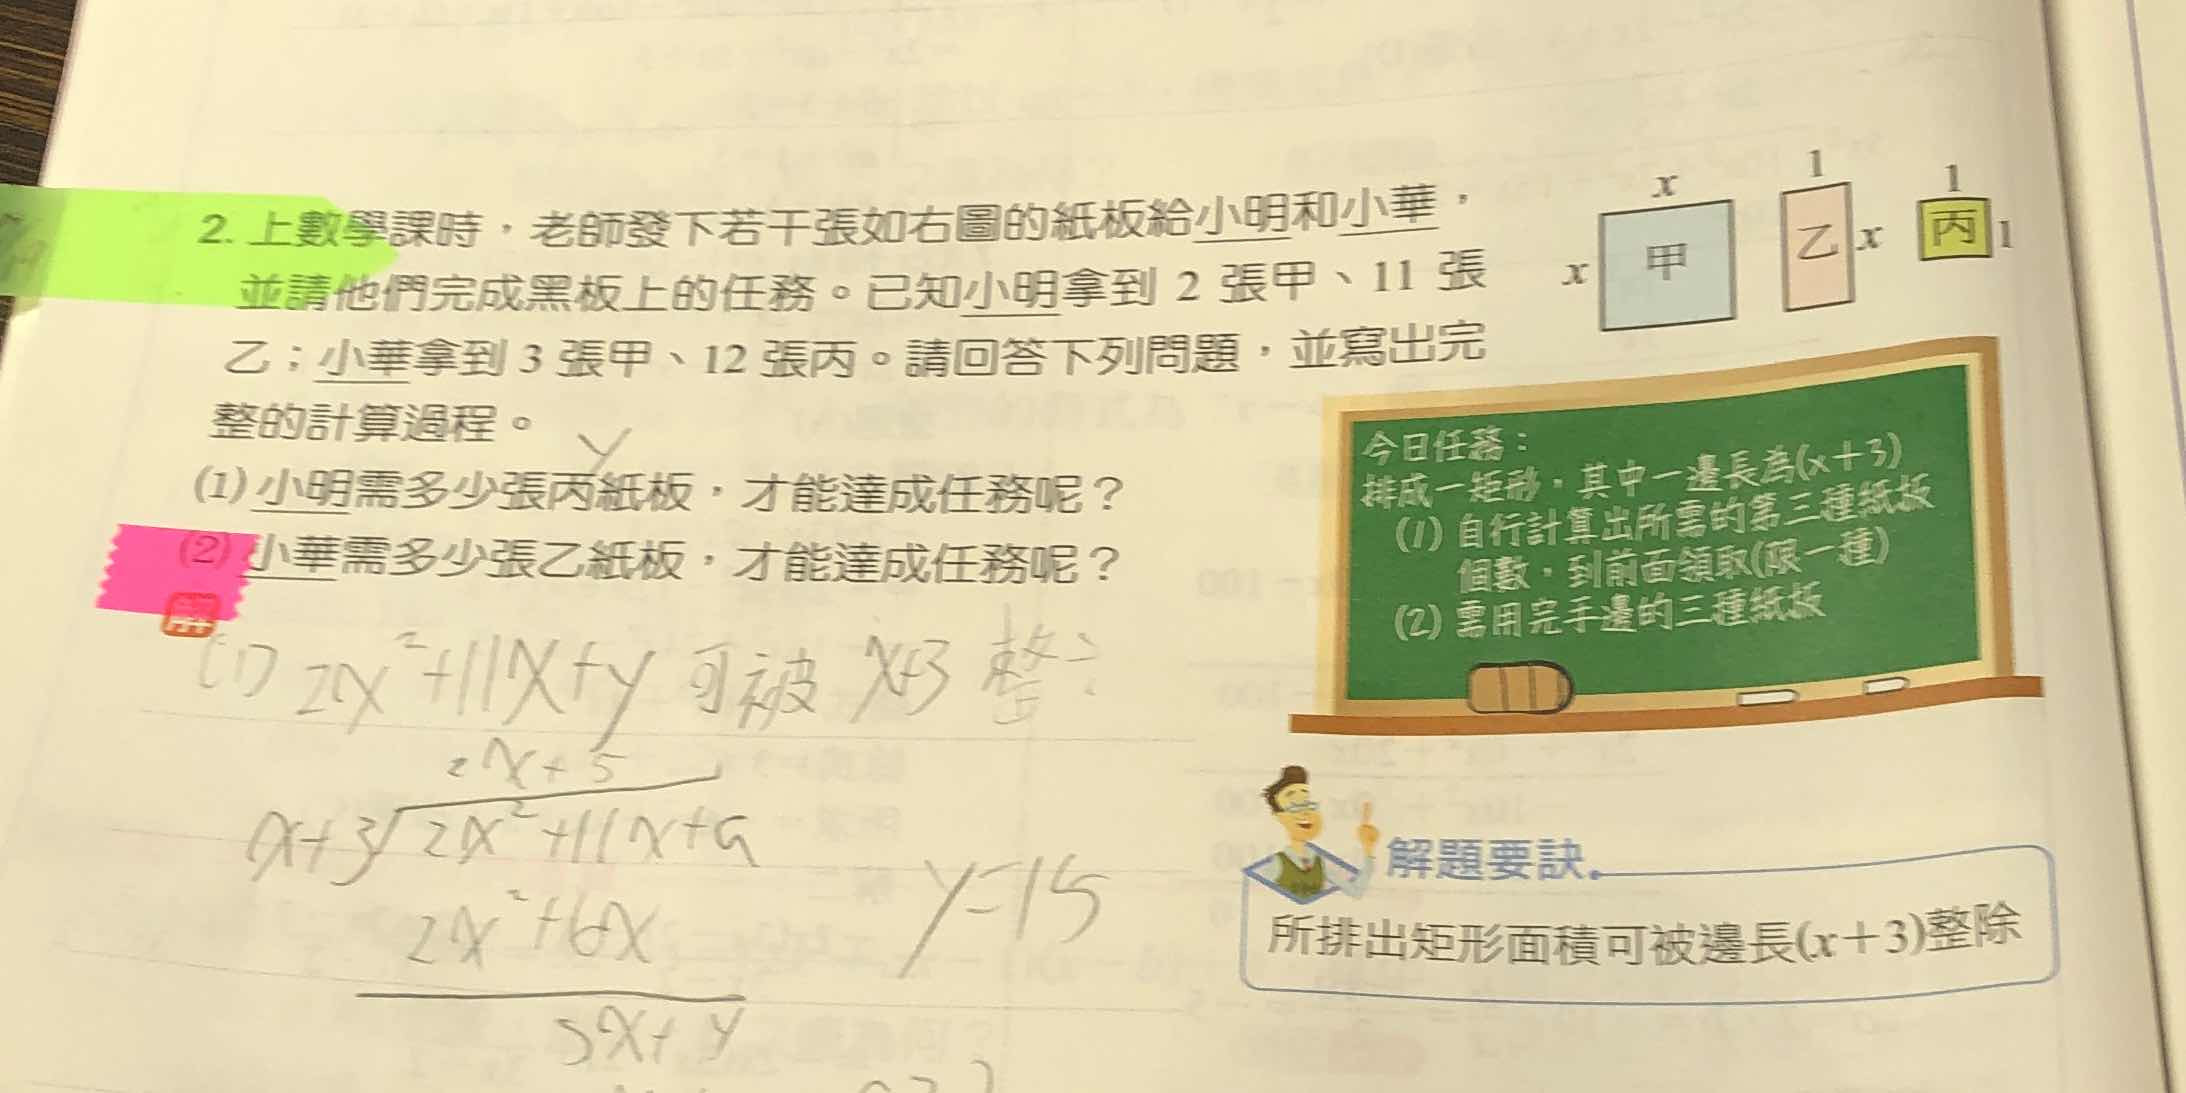 2. 上數學課時，老師發下若干張如右圖的紙板給小明和小華，
並請他們完成黑板上的任務。已知小明拿到 2 張甲、11 張
乙；小華拿到 3 張甲、12 張丙。請回答下列問題，並寫出完
整的計算過程。
y
(1) 小明需多少張丙紙板，才能達成任務呢？
(2) 小華需多少張乙紙板，才能達成任務呢？
解
x
x
甲
1
乙
x
1
丙
1
今日任務：
排成一矩形，其中一邊長為(x＋3)
(1) 自行計算出所需的第三種紙板
個數，到前面領取(限一種)
(2) 需用完手邊的三種紙板
(1) 2x²+11x+y 可被 x+3 整
2x+5
x+3 2x²+11x+
2x²+6x
5x+y
y=15
解題要訣
所排出矩形面積可被邊長(x＋3)整除